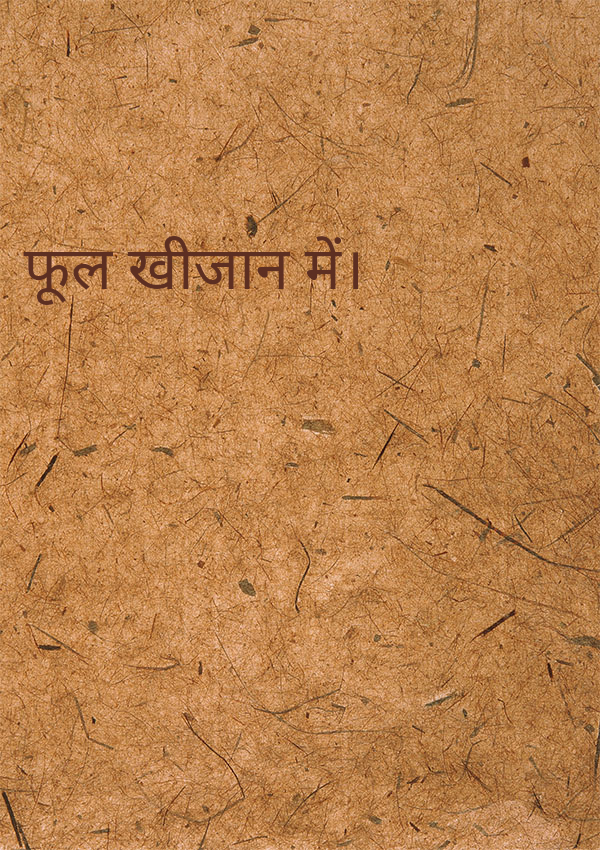 फूल खीजान में।